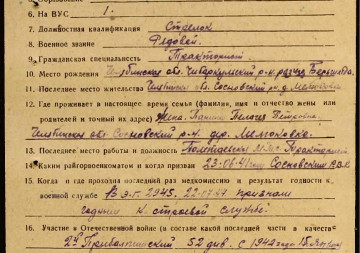 6. На ВУС 1.
7. Должностная квалификация Стрелок
8. Военное звание Рядовой.
9. Гражданская специальность Тракторист
10. Место рождения Челябинская обл. Чебаркульский р-н
11. Последнее место жительства Сосновский р-н д.
12. Где проживает в настоящее время семья (фамилия, имя и отчество жены или
родителей и точный их адрес) Жена Панина Пелагея Петровна.
Челябинская обл. Сосновский р-н. дер.
13. Последнее место работы и должность МТС. Тракторист
14. Каким райгорвоенкоматом и когда призван 23.06.41 Сосновский РВК
15. Когда и где проходил последний раз медкомиссию и результат годности к
военной службе 1945. признан
годным к строевой службе.
16. Участие в Отечественной войне (в составе какой последней части и в качестве
2й Прибалтийский 52 див. с 1942 года